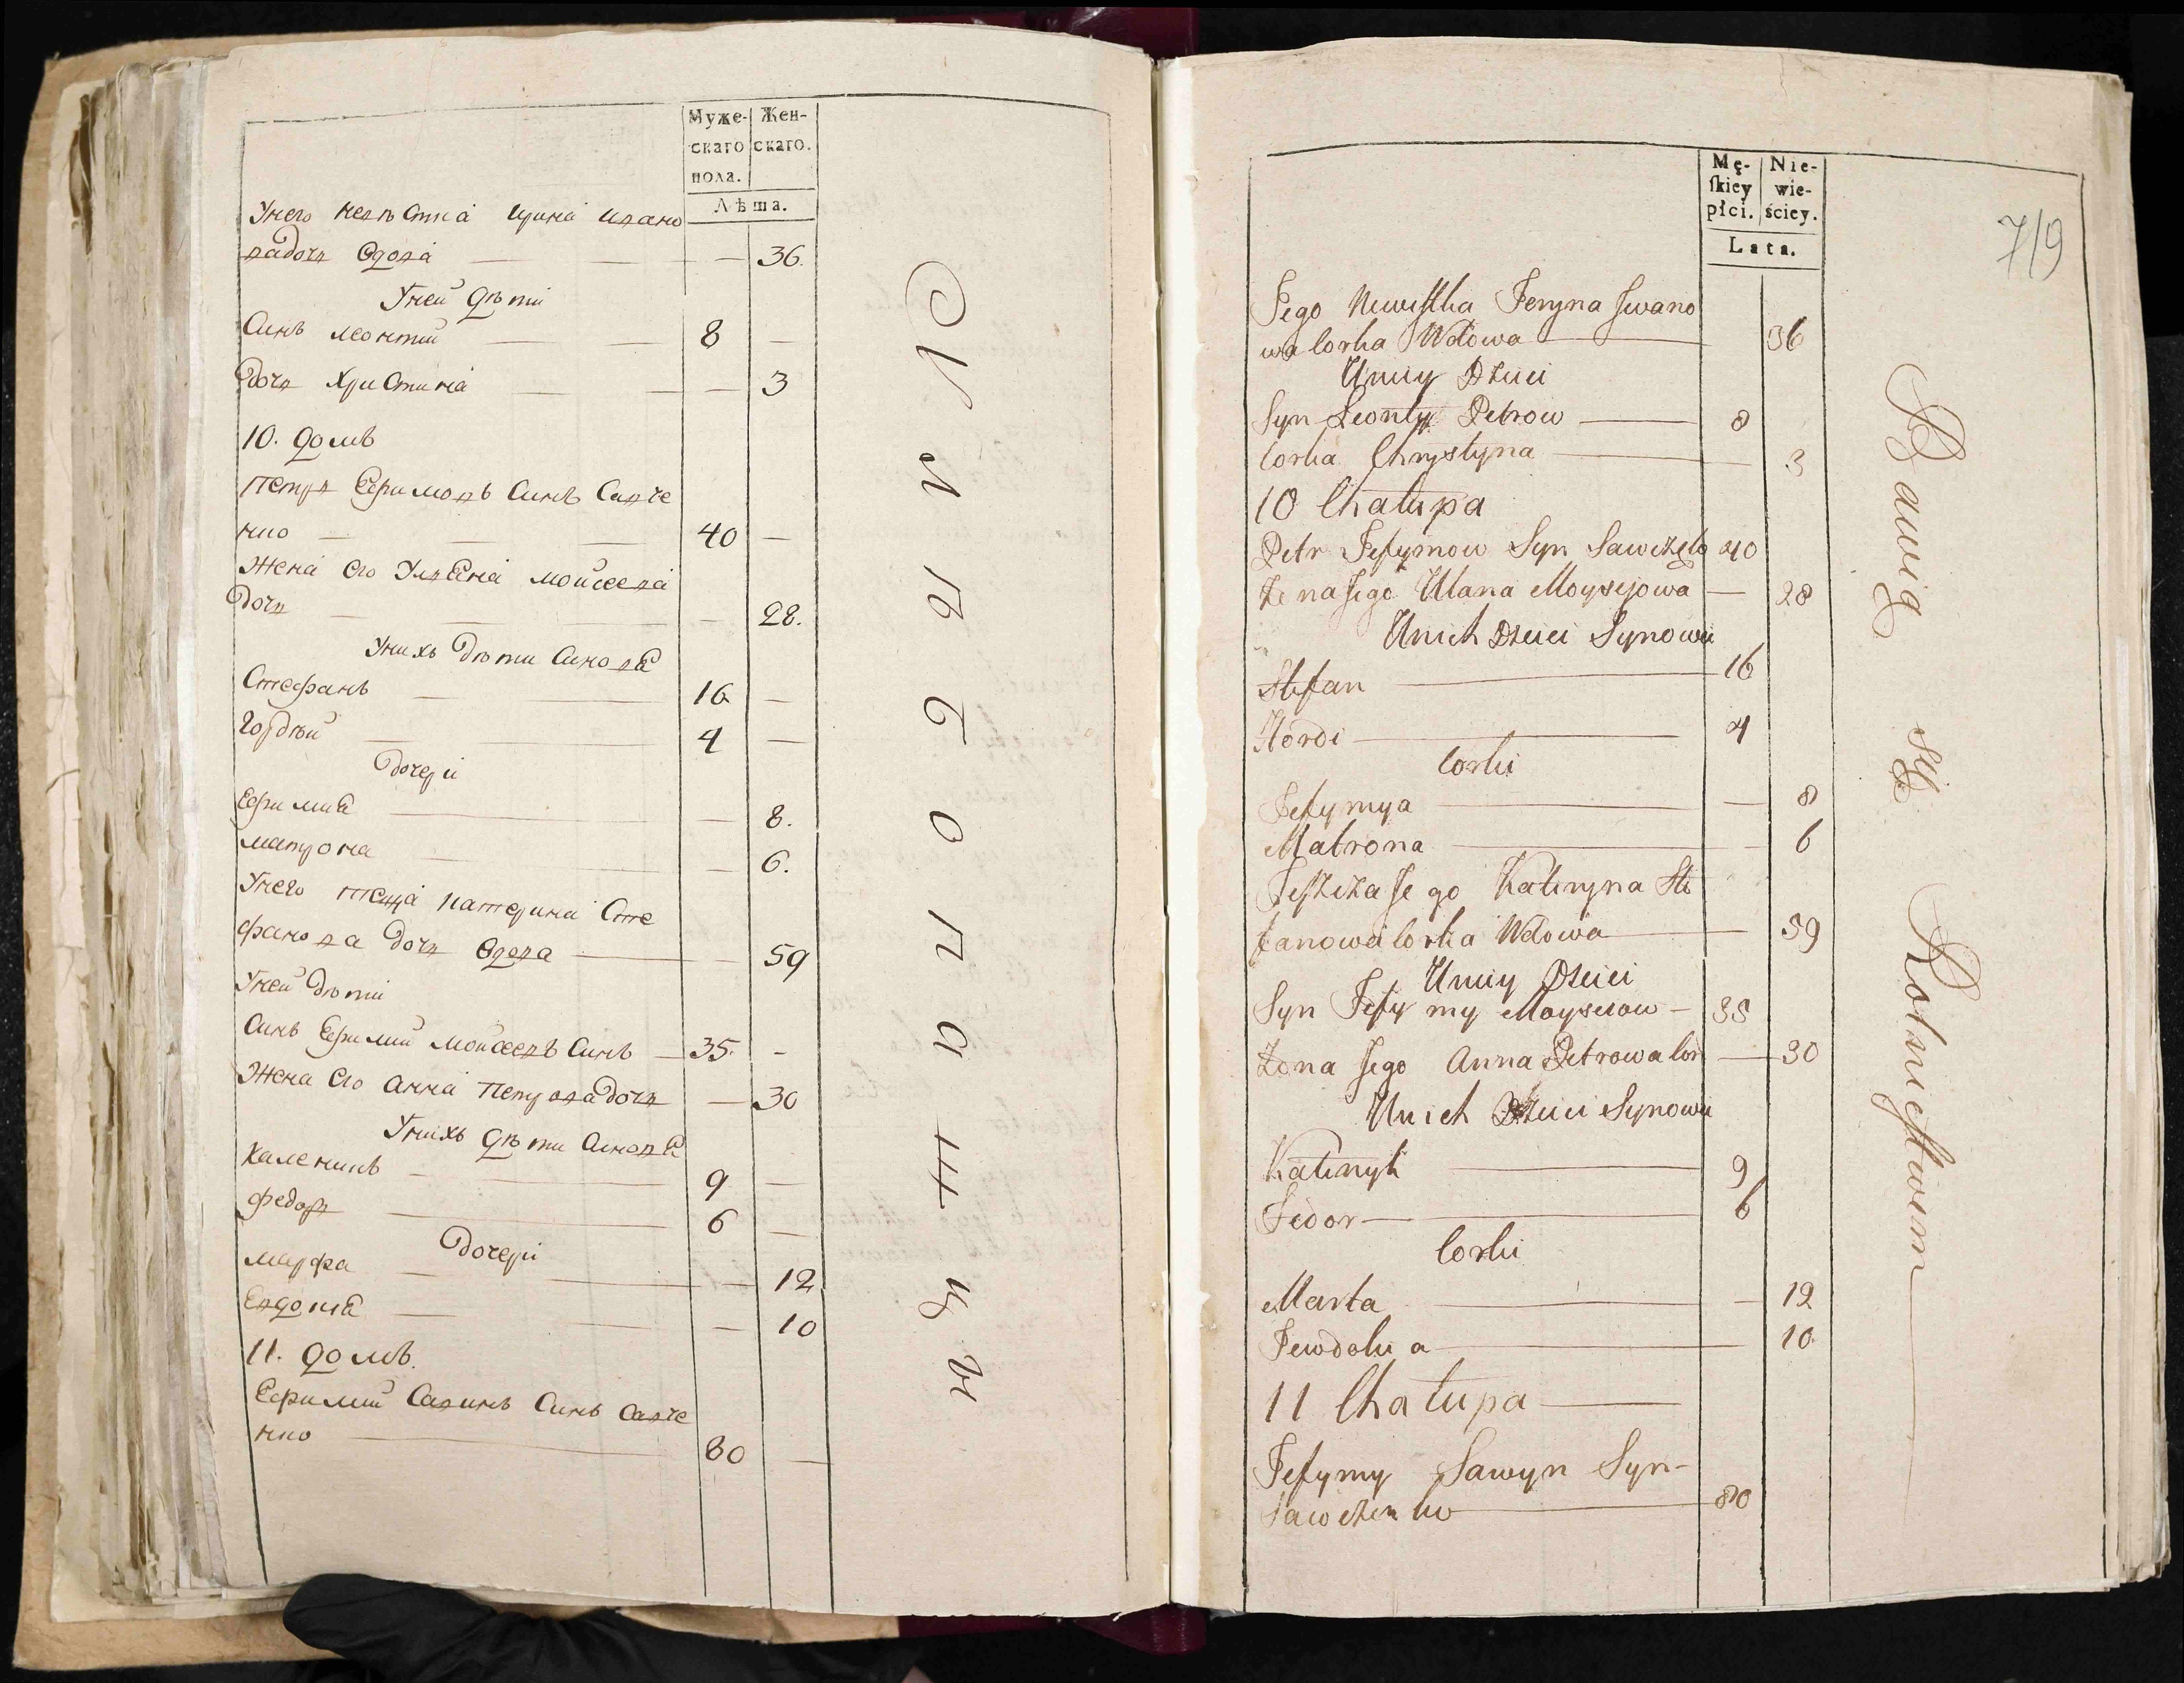 Муже-
скаго
пола.
Жен-
скаго.
Лѣта.
Унего невѣстка Ирина Ивано
вадочь вдова — 36.
Уней дѣти
Синъ леонтий 8 —
дочь христина — 3
10. домъ
Петръ Ефимовъ Синъ Савче
нко 40 —
Жена его Улияна мойсеева
дочь — 28.
Унихъ дѣти Синовя
Стефанъ 16 —
Гордѣй 4 —
дочери
Ефимия — 8.
матрона — 6.
Унего теща катерина Сте
фанова дочь вдова — 59
Уней дѣти
Синъ Ефимий мойсеевъ Синъ — 35. -
Жена его анна Петровадочь — 30
Унихъ дѣти Синовя
Каленикъ 9 —
федоръ 6 —
дочери
марфа — 12
Евдокия — 10
11. домъ.
Ефимий Савинъ Синъ Савче
нко 80 —
Mę-
skiey
płci.
Nie-
wie-
ściey.
Lata.
7/9
Jego Newistka Jeryna Jwano
wa Corka Wdowa 36
Uniey Dzieci
Syn Leonty Petrow 8
Corka Chrystyna 3
10 Chałupa
Petr Jefymow Syn Sawczęko 40
Żena Jego Ulana Moysejowa — 28
Unich Dzieci Synowie
Stefan 16
Hordi 4
Corki
Jefymya — 8
Matrona — 6
Teszcza Jego Kateryna Ste
fanowa Corka Wdowa — 59
Uniey Dzieci
Syn Jefymy Moyseiow — 35
Żona Jego Anna Petrowa Cor — 30
Unich Dzieci Synowie
Kalenyk 9
Fedor 6
Corki
Marta — 12
Jewdokia — 10
11 Chałupa
Jefymy Sawyn Syn-
Sawczenko 80
Bawią się Rolnictwem